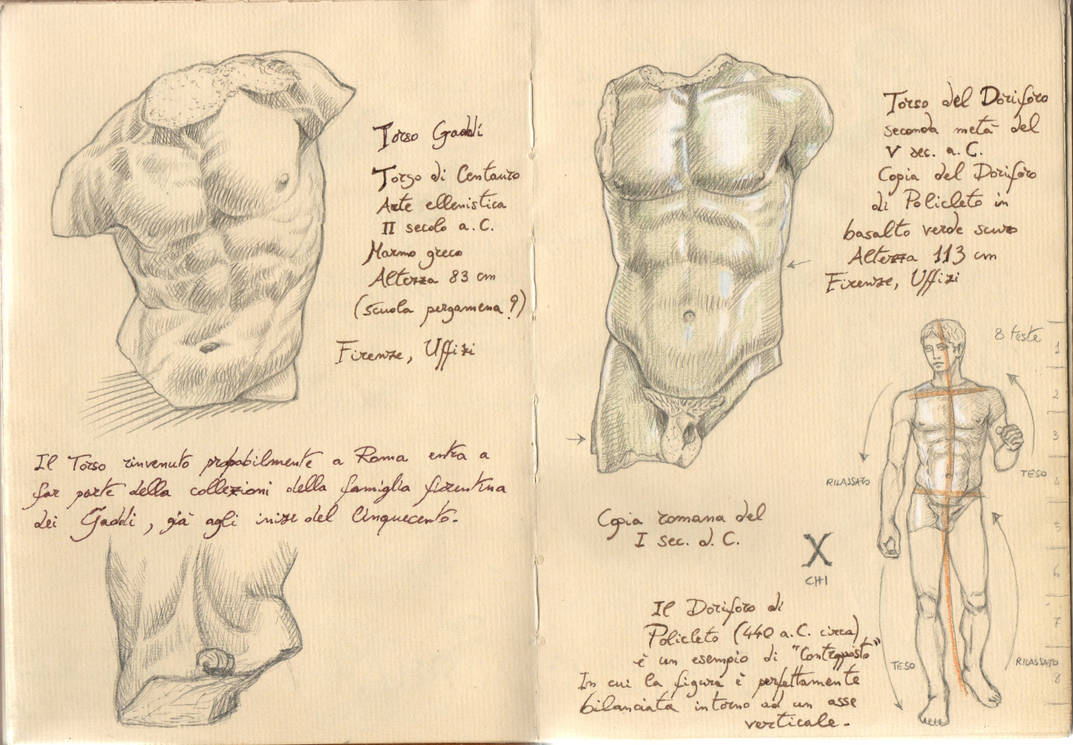 Torso Gaddi
Torso di Centauro
Arte ellenistica
II secolo a.C.
Marmo greco
Altezza 83 cm
(scuola pergamena?)
Firenze, Uffizi
Il Torso rinvenuto probabilmente a Roma entra a
far parte della collezioni della famiglia fiorentina
dei Gaddi, già agli inizi del Cinquecento.
Torso del Doriforo
seconda metà del
V sec. a.C.
Copia del Doriforo
di Policleto in
basalto verde scuro
Altezza 113 cm
Firenze, Uffizi
8 teste
1
2
3
4
5
6
7
8
RILASSATO
TESO
TESO
RILASSATO
Copia romana del
I sec. d.C.
X
CHI
Il Doriforo di
Policleto (440 a.C. circa)
è un esempio di "Contrapposto"
In cui la figura è perfettamente
bilanciata intorno ad un asse
verticale.